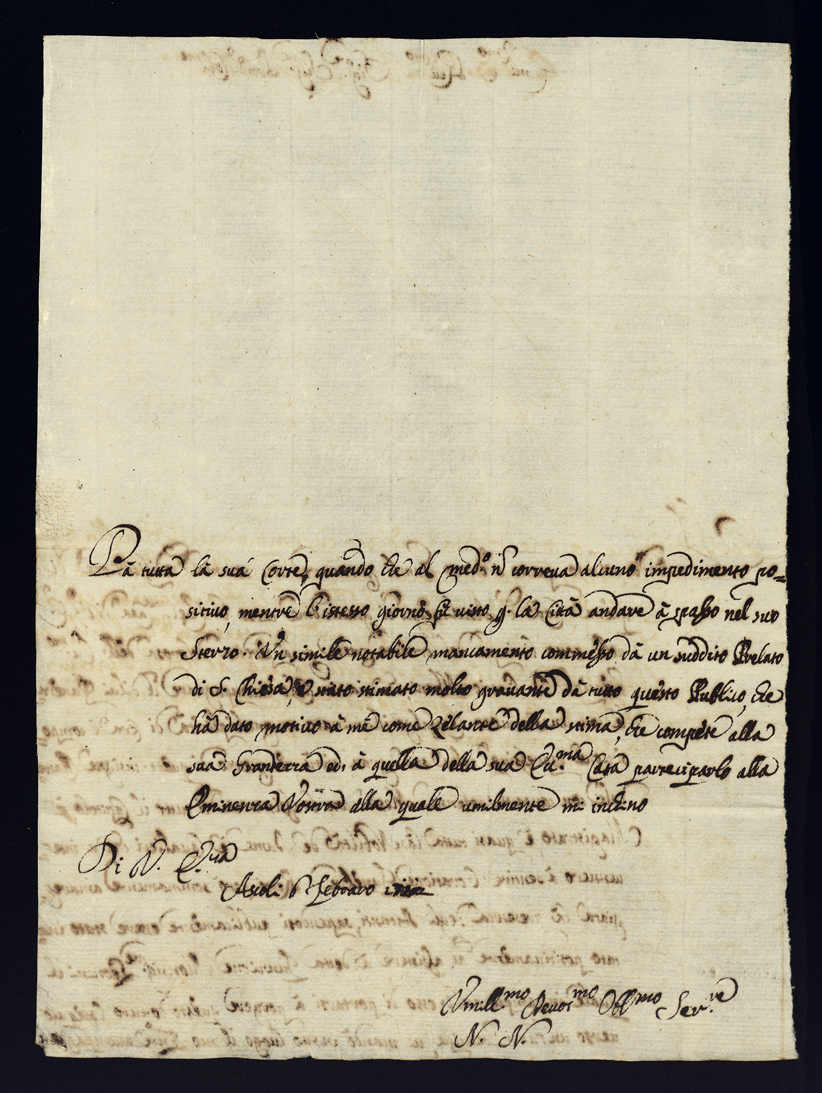 Da tutta la sua Corte, quando che al med.º nõ correva alcuno impedimento po=
sitivo, mentre l'istesso giorno fù visto p. la Città andare à spasso nel suo
Sterzo. Un simile notabile mancamento commesso dà un suddito Prelato
di S. Chiesa, è stato stimato molto gravante dà tutto questo Publico, che
hà dato motivo à mè come Zelante della stima, che compete alla
sua Grandezza ed à quella della sua Em.ma Casa parteciparlo alla
Eminenza Vostra alla quale umilmente mi inchino
Di V. E.za
Ascoli Febraro
Umill.mo Devot.mo Obb.mo Ser.re
N. N.